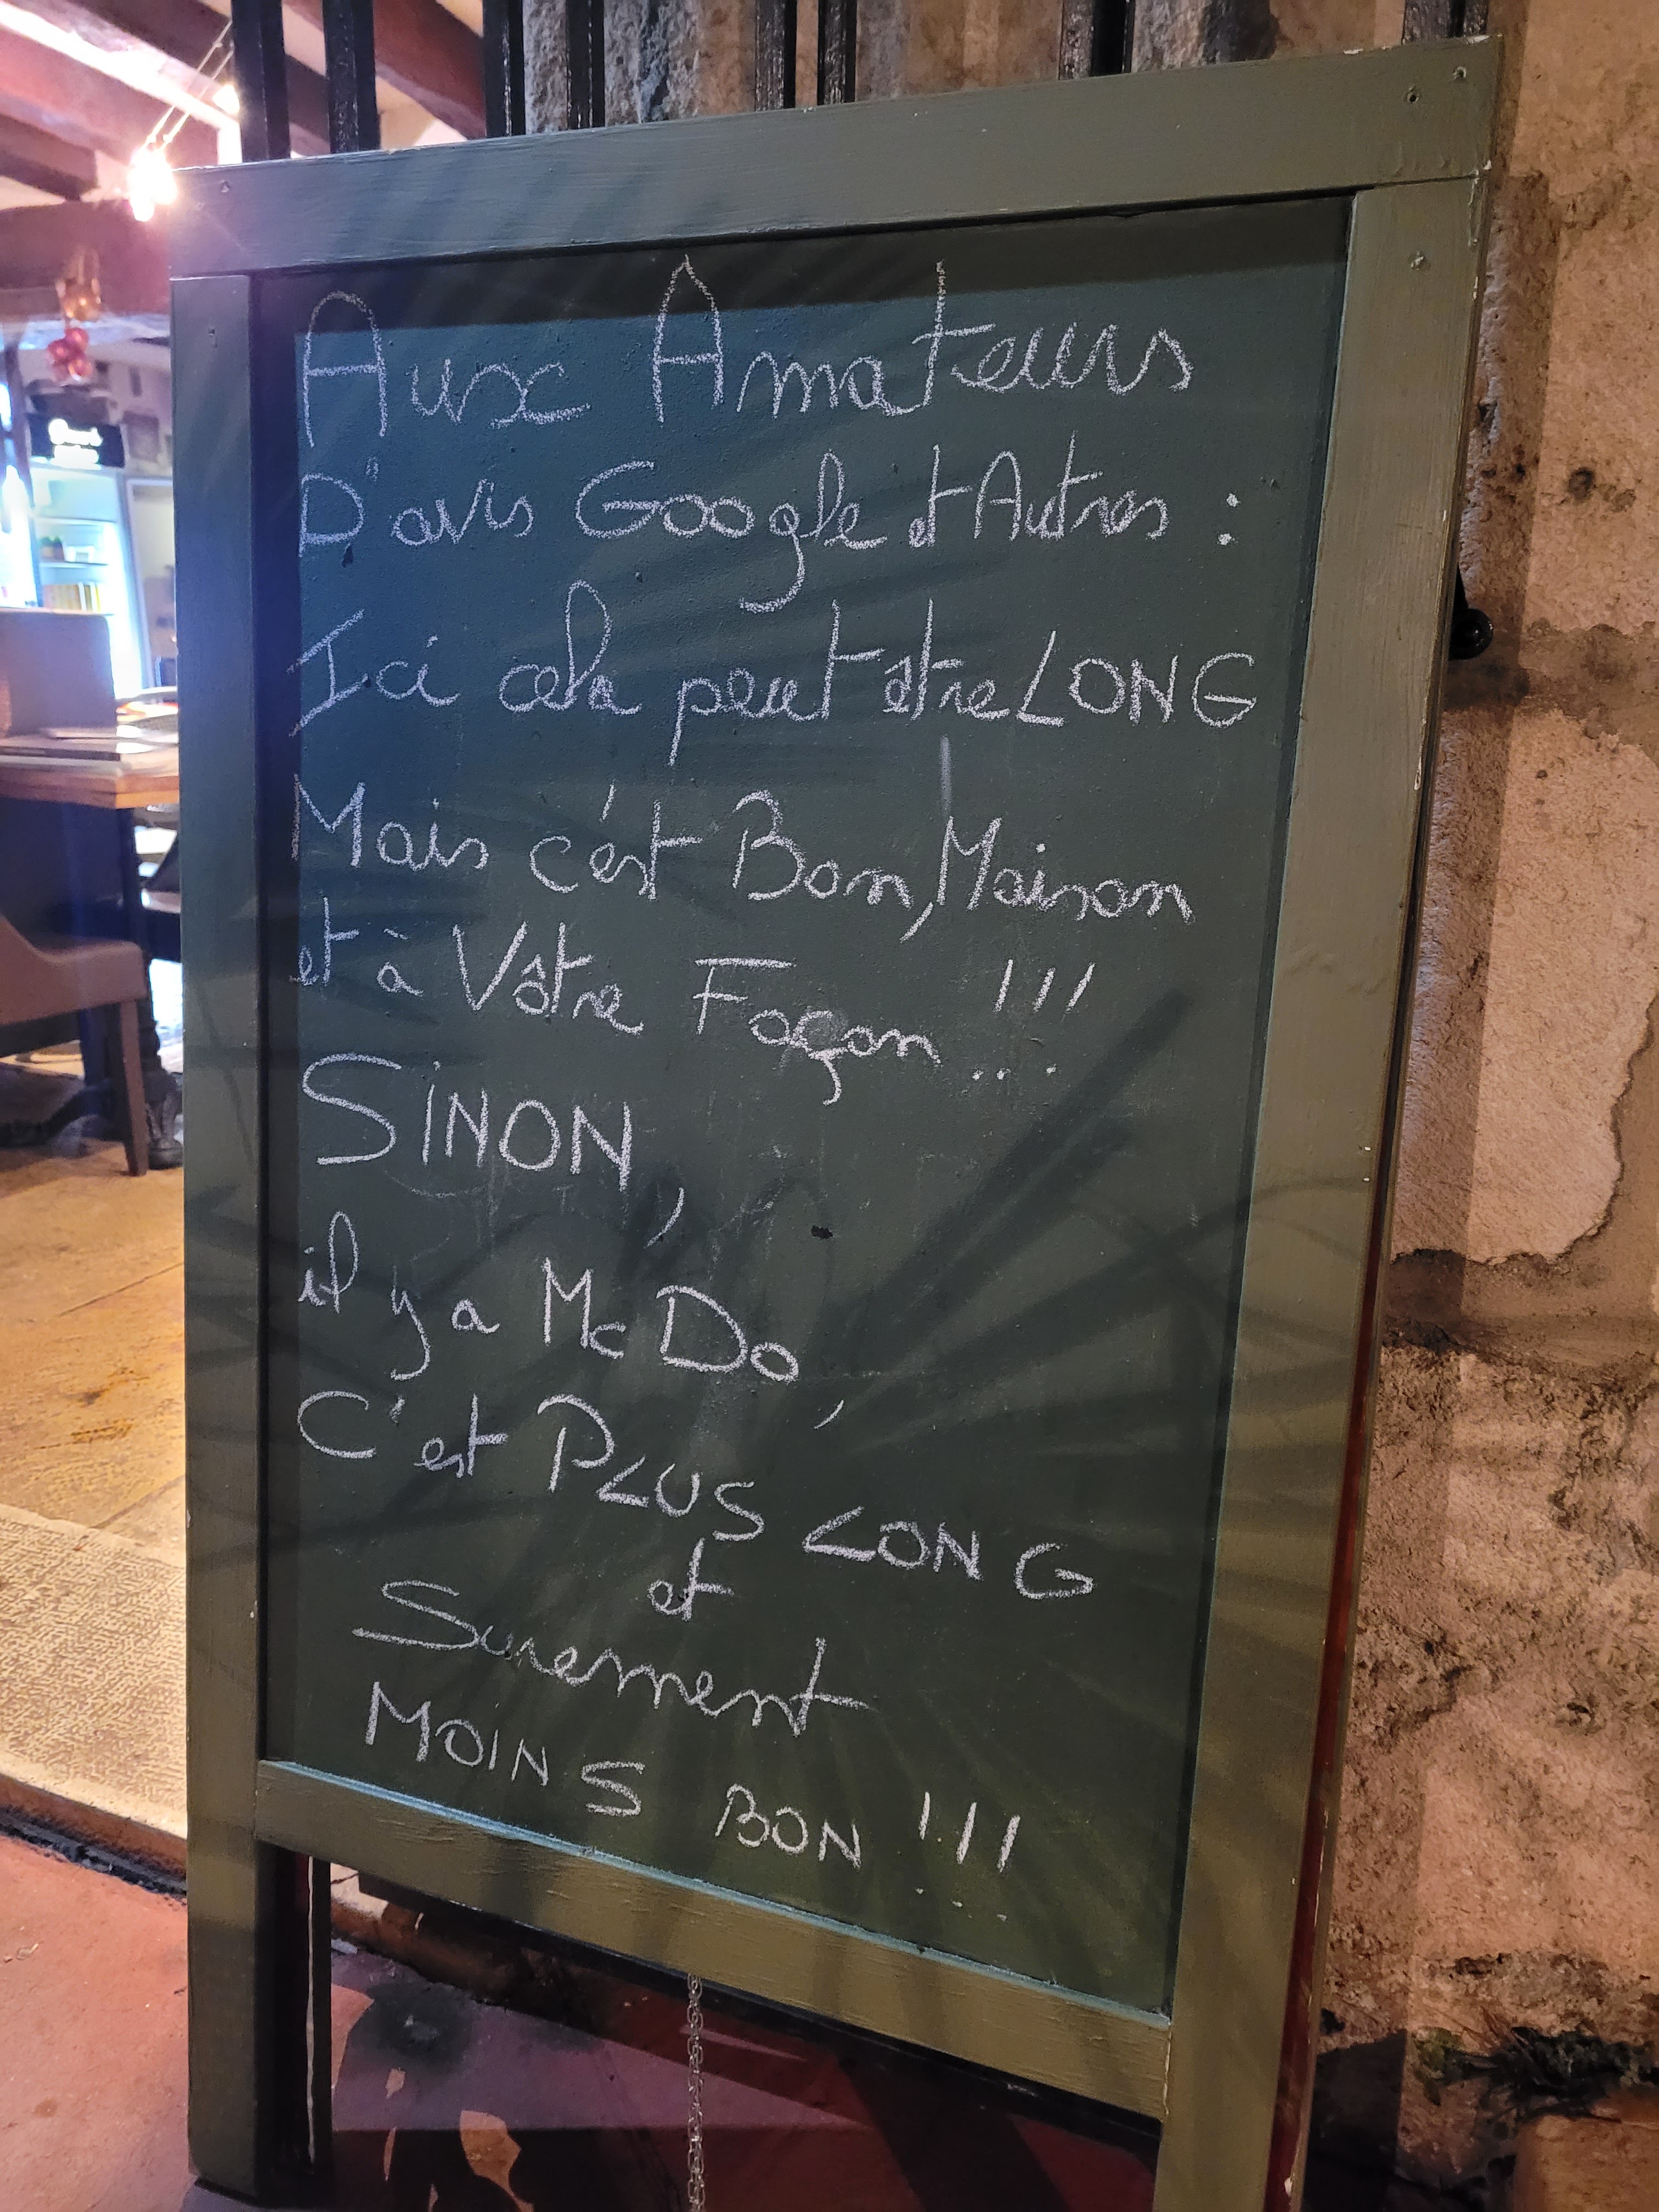 Aux Amateurs
D'avis Google et Autres :
Ici cela peut être LONG
Mais c'est Bon, Maison
et à Vôtre Façon...!!!
SiNON,
il y a Mc Do,
C'est PLUS LONG
et
Surement
MOINS BON !!!